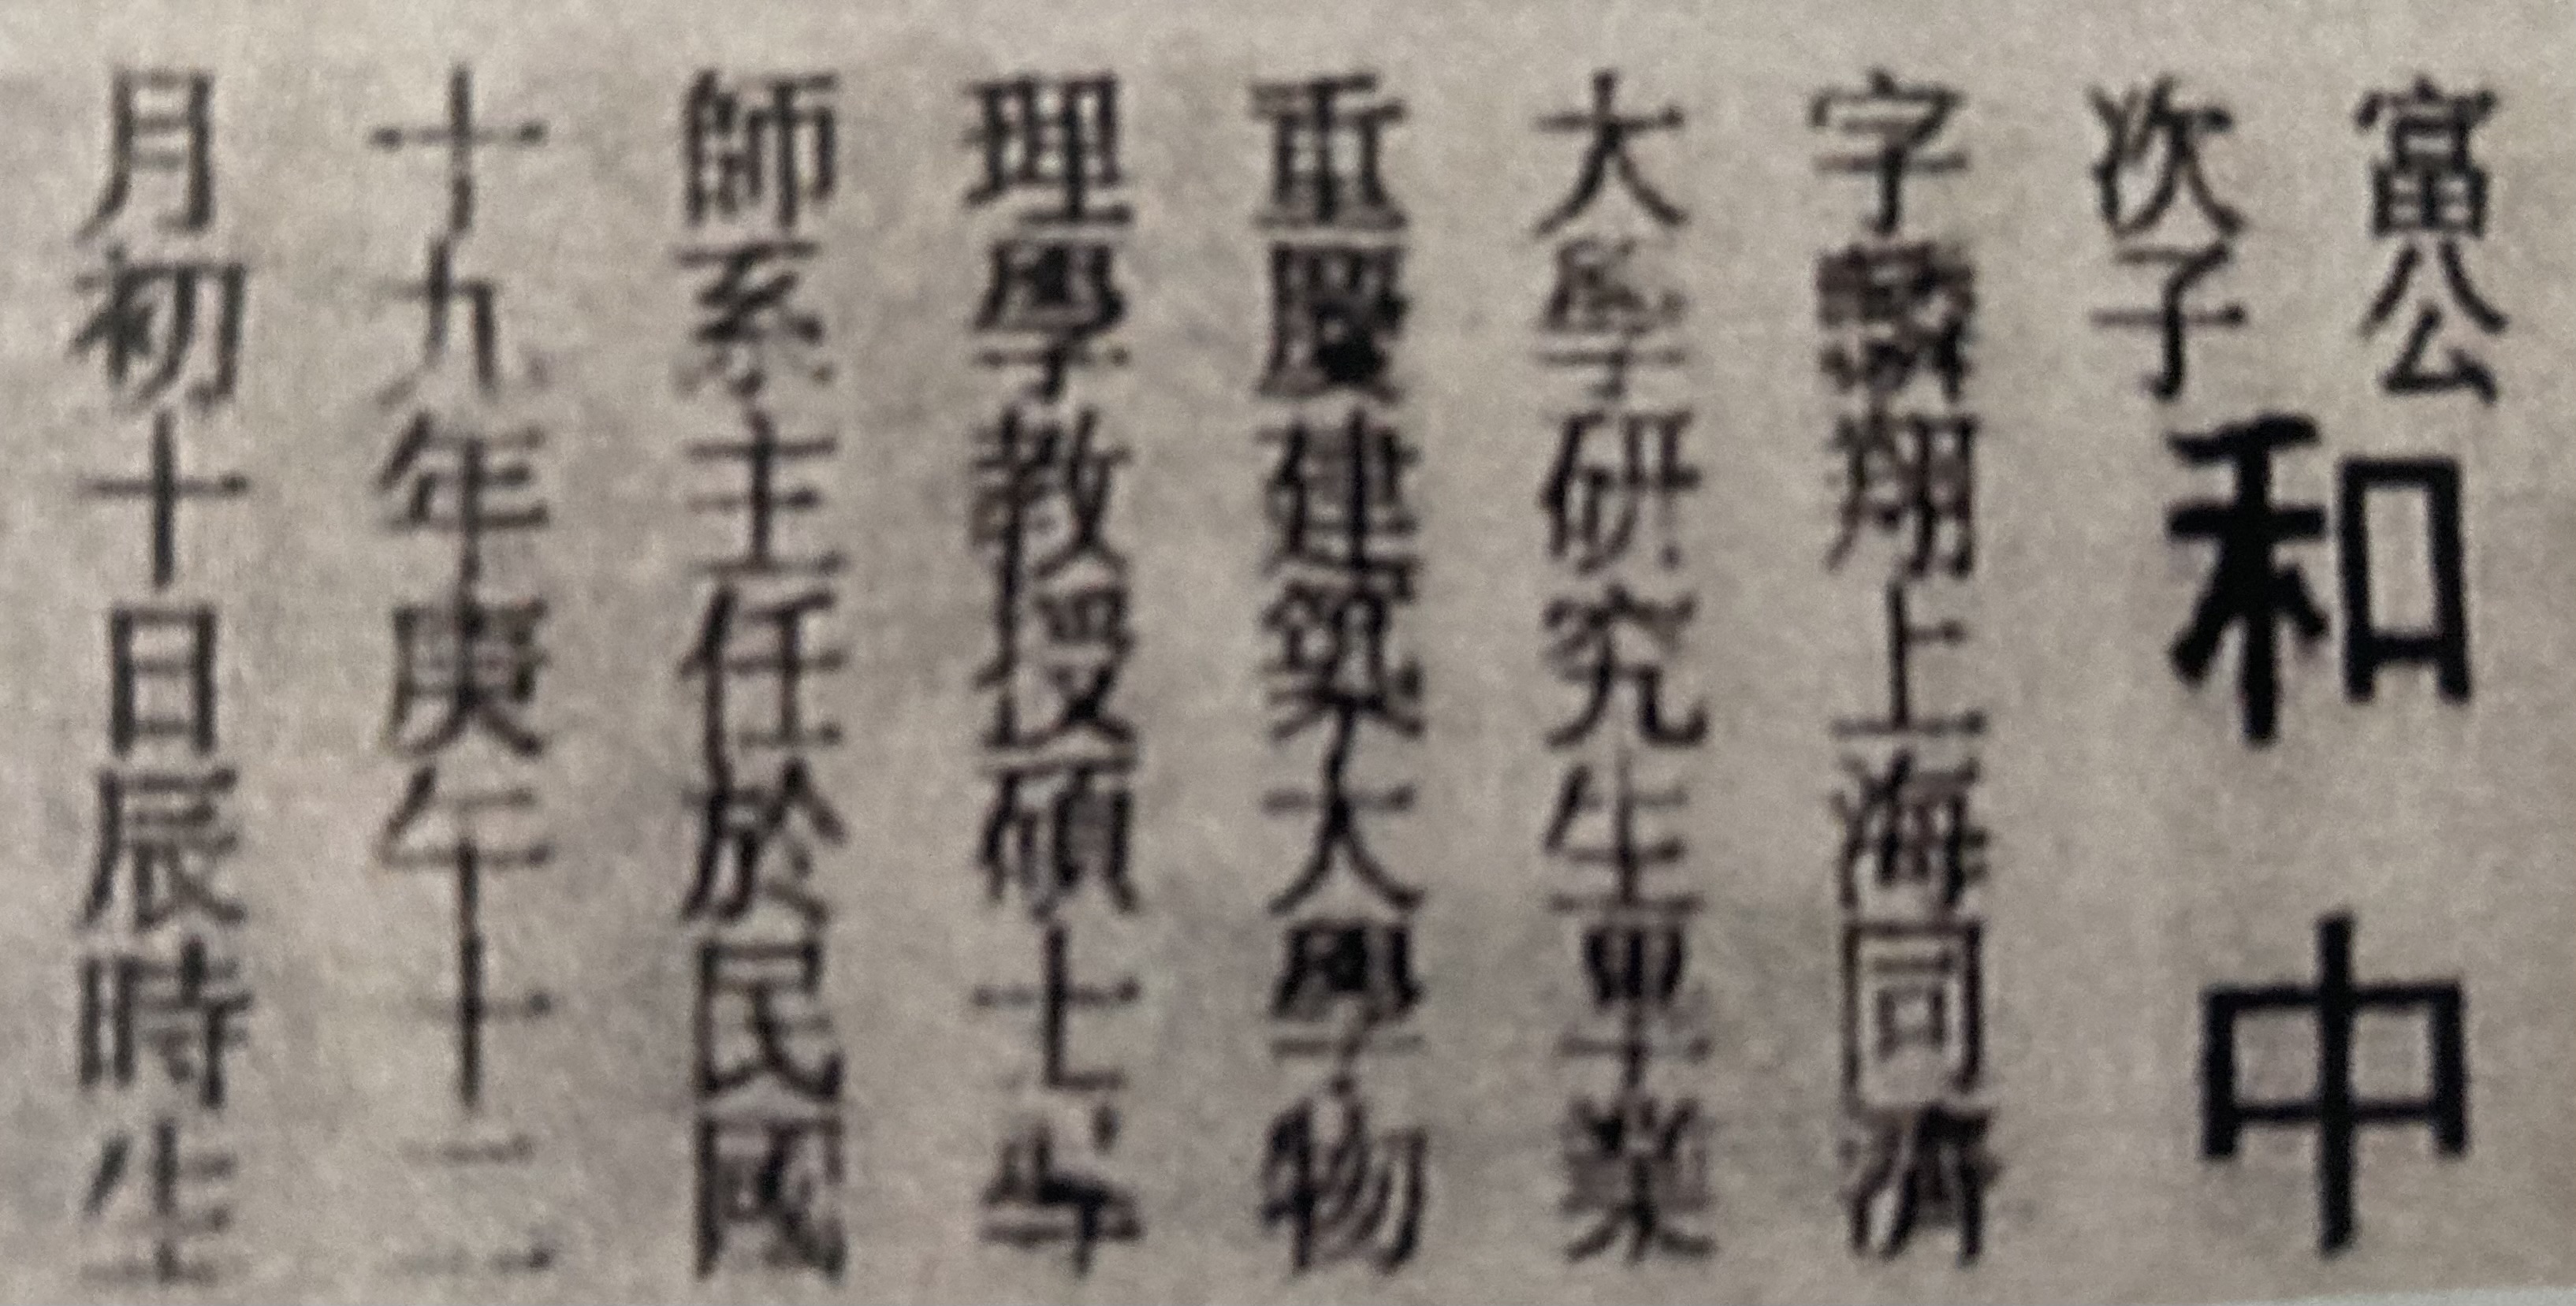 富公
次子
和中
字翔上海同濟
大學研究生畢業
重慶建築大學物
理學教授碩士導
師系主任於民國
十九年庚午十二
月初十日辰時生